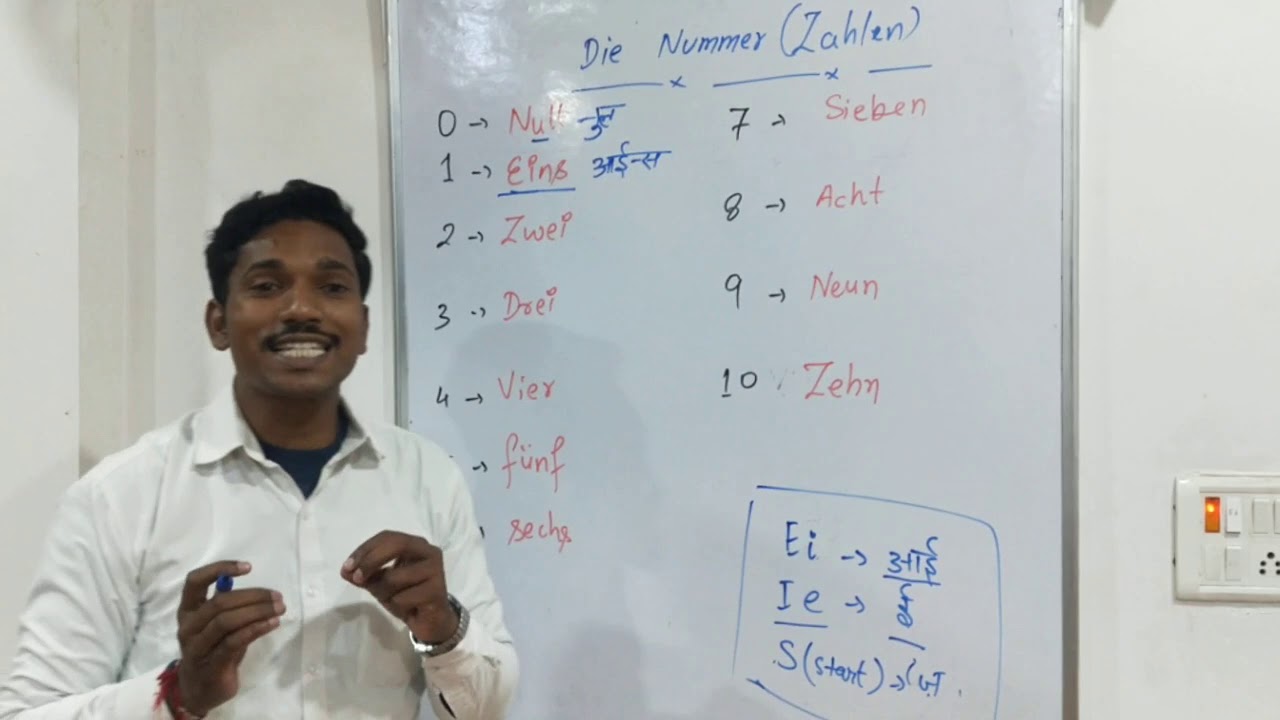 Die Nummer (Zahlen)
0 → Null नुल
1 → Eins आईन्स
2 → Zwei
3 → Drei
4 → Vier
→ fünf
sechs
7 → Sieben
8 → Acht
9 → Neun
10 Zehn
Ei → आई
Ie → ई
S (start) →